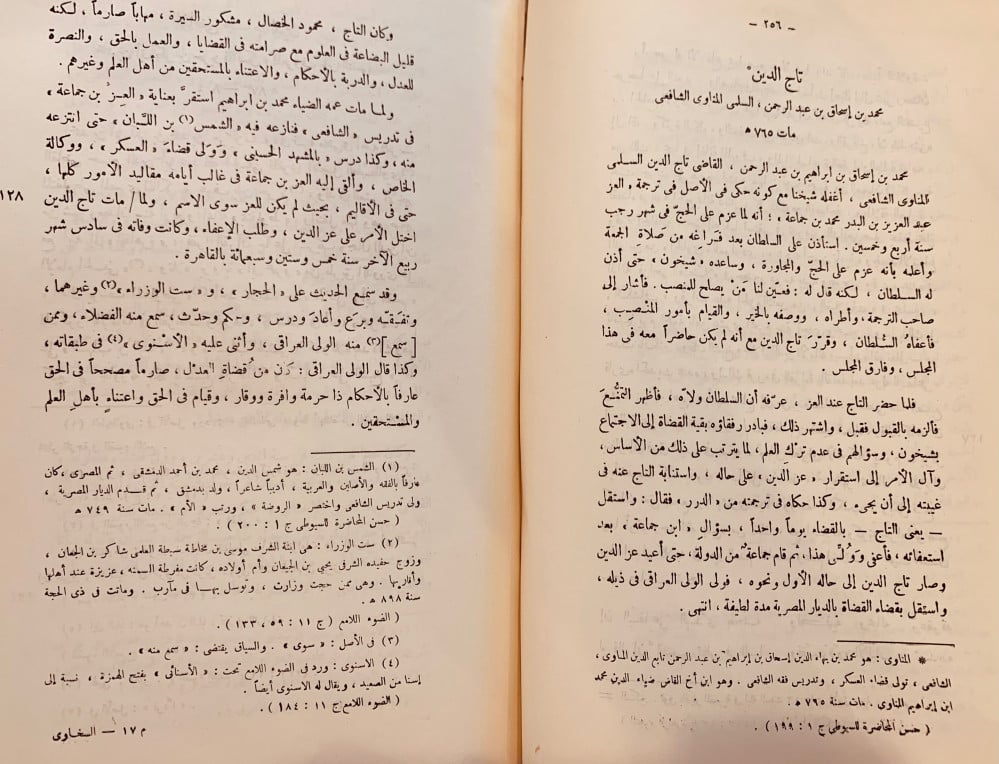 – ٢٥٦ –
تاج الدين*
محمد بن إسحاق بن عبد الرحمن، السلمى المناوى الشافعى
مات ٧٦٥ هـ
محمد بن إسحاق بن ابراهيم بن عبد الرحمن ، القاضى تاج الدين السلمى
المناوى الشافعى ، أغفله شيخنا مع كونه حكى فى الأصل فى ترجمة « العز
عبد العزيز بن البدر محمد بن جماعة » ؛ أنه لما عزم على الحجّ فى شهر رجب
سنة أربع وخمسين . استأذن على السلطان بعد فراغه من صلاة الجمعة
وأعلمه بأنه عزم على الحجّ والمجاورة ، وساعده « شيخون » حتى أذن
له السلطان ، لكنه قال له : فعيّن لنا مَنْ يصلح للمنصب . فأشار إلى
صاحب الترجمة ، وأطراه ، ووصفه بالخير ، والقيام بأمور المنْصِب ،
فأعفاهُ السُّلطان ، وقرّرَ تاج الدين مع أنه لم يكن حاضراً معه فى هذا
المجلس ، وفارق المجلس .
فلما حضر التاج عند العز ، عرّفه أن السلطان ولاّه ، فأظهر التمنُّعَ
فألزمه بالقبول فقبل ، واشتهر ذلك ، فبادر رفقاؤه بقية القضاة إلى الاجتماع
بشيخون ، وسؤالهم فى عدم ترْك العلم ، لما يترتب على ذلك من الأساس،
وآل الأمر إلى استقرار « عز الدين ، على حاله ، واستنابة التاج عنه فى
غيبته إلى أن يجىء ، وكذا حكاه فى ترجمته من « الدرر » فقال : واستقل
– يعنى التاج – بالقضاء يوماً واحداً ، بسؤال « ابن جماعة » بعد
استعفائه ، فأعفى وَوُلّى هذا ، ثم قام جماعة من الدولة ، حتى أعيد عز الدين
وصار تاج الدين إلى حاله الأول ونحوه ، فولى الولى العراقى فى ذيله ،
واستقل بقضاء القضاة بالديار المصرية مدة لطيفة ، انتهى .
* المناوى : هو محمد بن بهاء الدين إسحاق بن إبراهيم بن عبد الرحمن تابع الدين المناوى ،
الشافعى ، تولى قضاء العسكر ، وتدريس فقه الشافعى . وهو ابن أخ القاضى ضياء الدين محمد
ابن إبراهيم المناوى . مات سنة ٧٦٥ هـ .
( حسن المحاضرة للسيوطى ج ١ : ١٩٩ ) .
وكان التاج ، محمود الخصال ، مشكور السيرة ، مهاباً صارماً ، لكنه
قليل البضاعة فى العلوم مع صرامته فى القضايا ، والعمل بالحق ، والنصرة
للعدل ، والدربة بالأحكام ، والاعتناء بالمستحقين من أهل العلم وغيرهم .
ولما مات عمه الضياء محمد بن ابراهيم استقرَّ بعناية « العِز بن جماعة »
فى تدريس « الشافعى » فنازعه فيه « الشمس (١) بن اللَّبان » حتى انتزعه
منه ، وكذا درس « بالمشهد الحسينى » وَوَلى قضاءَ « العسكر » ، ووكالة
الخاص ، وألقى إليه العز بن جماعة فى غالب أيامه مقاليد الأمور كلّها ،
حتى فى الأقاليم ، بحيث لم يكن للعز سوى الاسم ، ولما/ مات تاج الدين
١٢٨
اختل الأمر على عز الدين ، وطلب الإعفاء ، وكانت وفاته فى سادس شهر
ربيع الآخر سنة خمس وستين وسبعمائة بالقاهرة .
وقد سمع الحديث على « الحجار » ، و « ست الوزراء »(٢) وغيرهما ،
وتفقّه وبرع وأعادَ ودرس ، وحكم وحدّث ، سمع منه الفضلاء ، وممن
[ سمع ](٣) منه الولى العراقى ، وأثنى عليه « الأسْنوى »(٤) فى طبقاته ،
وكذا قال الولى العراقى : كان من قُضاةِ العدْل ، صارماً مصححاً فى الحق
عارفاً بالأحكام ذا حرمة وافرة ووقار ، وقيام فى الحق واعتناءٍ بأهلِ العلم
والمسْتحقين .
(١) الشمس بن اللبان : هو شمس الدين ، محمد بن أحمد الدمشقى ، ثم المصرى ، كان
عارفاً بالفقه والأصلين والعربية ، أديباً شاعراً ، ولد بدمشق ، ثم قدم الديار المصرية ،
ولى تدريس الشافعى واختصر « الروضة » ، ورتب « الأم » . مات سنة ٧٤٩ هـ
( حسن المحاضرة للسيوطى ج ١ : ٢٠٠ ) .
(٢) ست الوزراء : هى ابنة الشرف موسى بن مخاطة سبطة العلمى شاكر بن الجيعان ،
وزوج حفيده الشرفى يحيى بن الجيعان وأم أولاده ، كانت مفرطة السمنه ، عزيزة عند أهلها
وأقاربها . وهى ممن حجت وزارت ، وتوسل بها فى مآرب . وماتت فى ذى الحجة
سنة ٨٩٨ هـ .
( الضوء اللامع ( ج ١١ : ٥٩ ، ١٣٣ ) .
(٣) فى الأصل : « سوى » . والسياق يقتضى : « سمع منه » .
(٤) الاسنوى : ورد فى الضوء اللامع تحت : « الأسنائى » بفتح الهمزة ، نسبة إلى
إسنا من الصعيد ، ويقال له الاسنوى أيضاً .
( الضوء اللامع ج ١١ : ١٨٤ ) .
م ١٧ – السخاوى